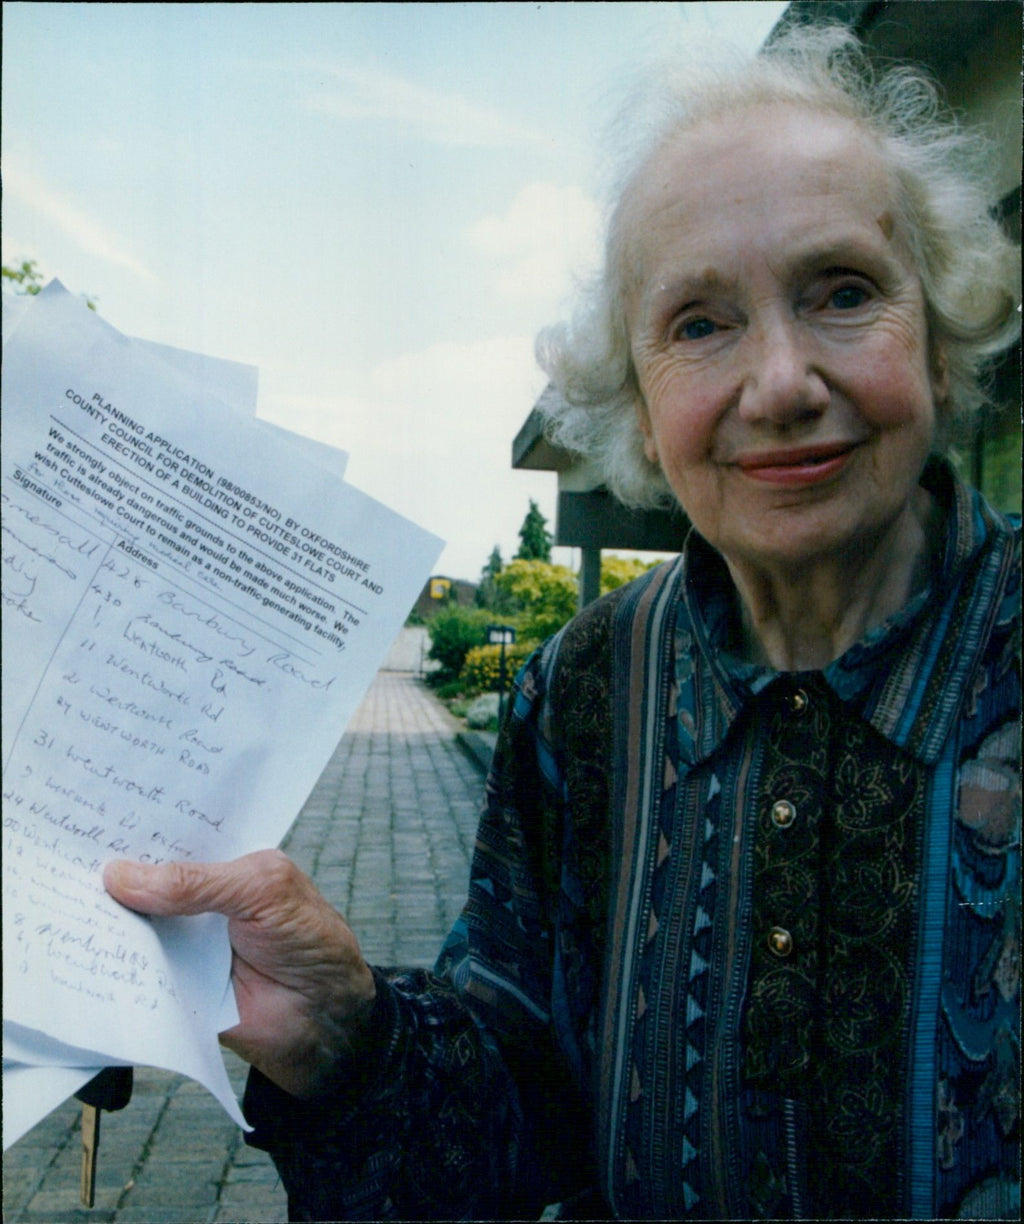 PLANNING APPLICATION (98/00853/NO) BY OXFORDSHIRE
COUNTY COUNCIL FOR DEMOLITION OF CUTTESLOWE COURT AND
ERECTION OF A BUILDING TO PROVIDE 31 FLATS
We strongly object on traffic grounds to the above application. The
traffic is already dangerous and would be made much worse. We
wish Cutteslowe Court to remain as a non-traffic-generating facility,
for those requiring medical care
Signature Address
426 Banbury Road
430 Banbury Road.
1, Wentworth Rd
11 Wentworth Rd
21 Wentworth Road
24 WENTWORTH ROAD
31 Wentworth Road
9 Wentworth Rd Oxford
24 Wentworth Rd
Wentworth
8 Wentworth Rd
Wentworth Rd
Wentworth Rd